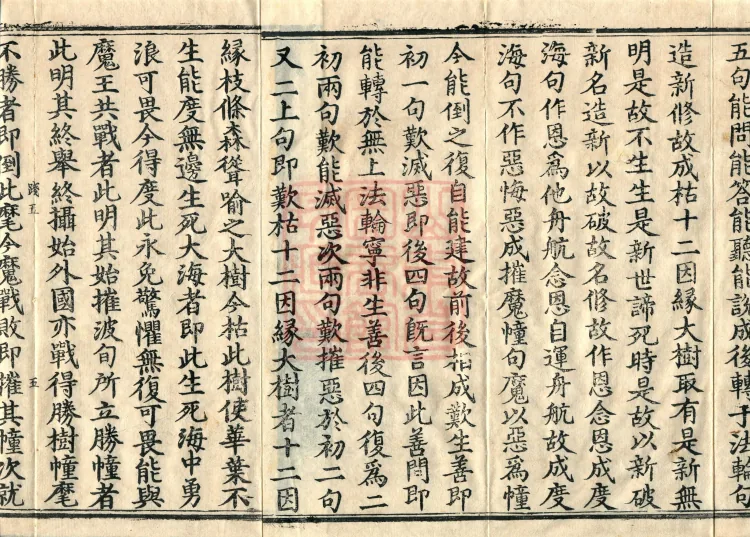 五句能問能答能聽能説成後轉于法輪句
造新修故成枯十二因縁大樹取有是新無
明是故不生生是新世諦死時是故以新破
新名造新以故破故名修故作恩念恩成度
海句作恩爲他舟航念恩自運舟航故成度
海句不作惡悔惡成摧魔幢句魔以惡爲幢
今能倒之復自能建故前後相成歎生善即
初一句歎滅惡即後四句既言因此善問即
能轉於無上法輪寧非生善後四句復爲二
初兩句歎能滅惡次兩句歎摧惡於初二句
又二上句即歎枯十二因縁大樹者十二因
縁枝條森聳喻之大樹今枯此樹使華葉不
生能度無邊生死大海者即此生死海中勇
浪可畏今得度此永免驚懼無復可畏能與
魔王共戰者此明其始摧波旬所立勝幢者
此明其終舉終攝始外國亦戰得勝樹幢麾
不勝者即倒此麾今魔戰敗即摧其幢次就
五